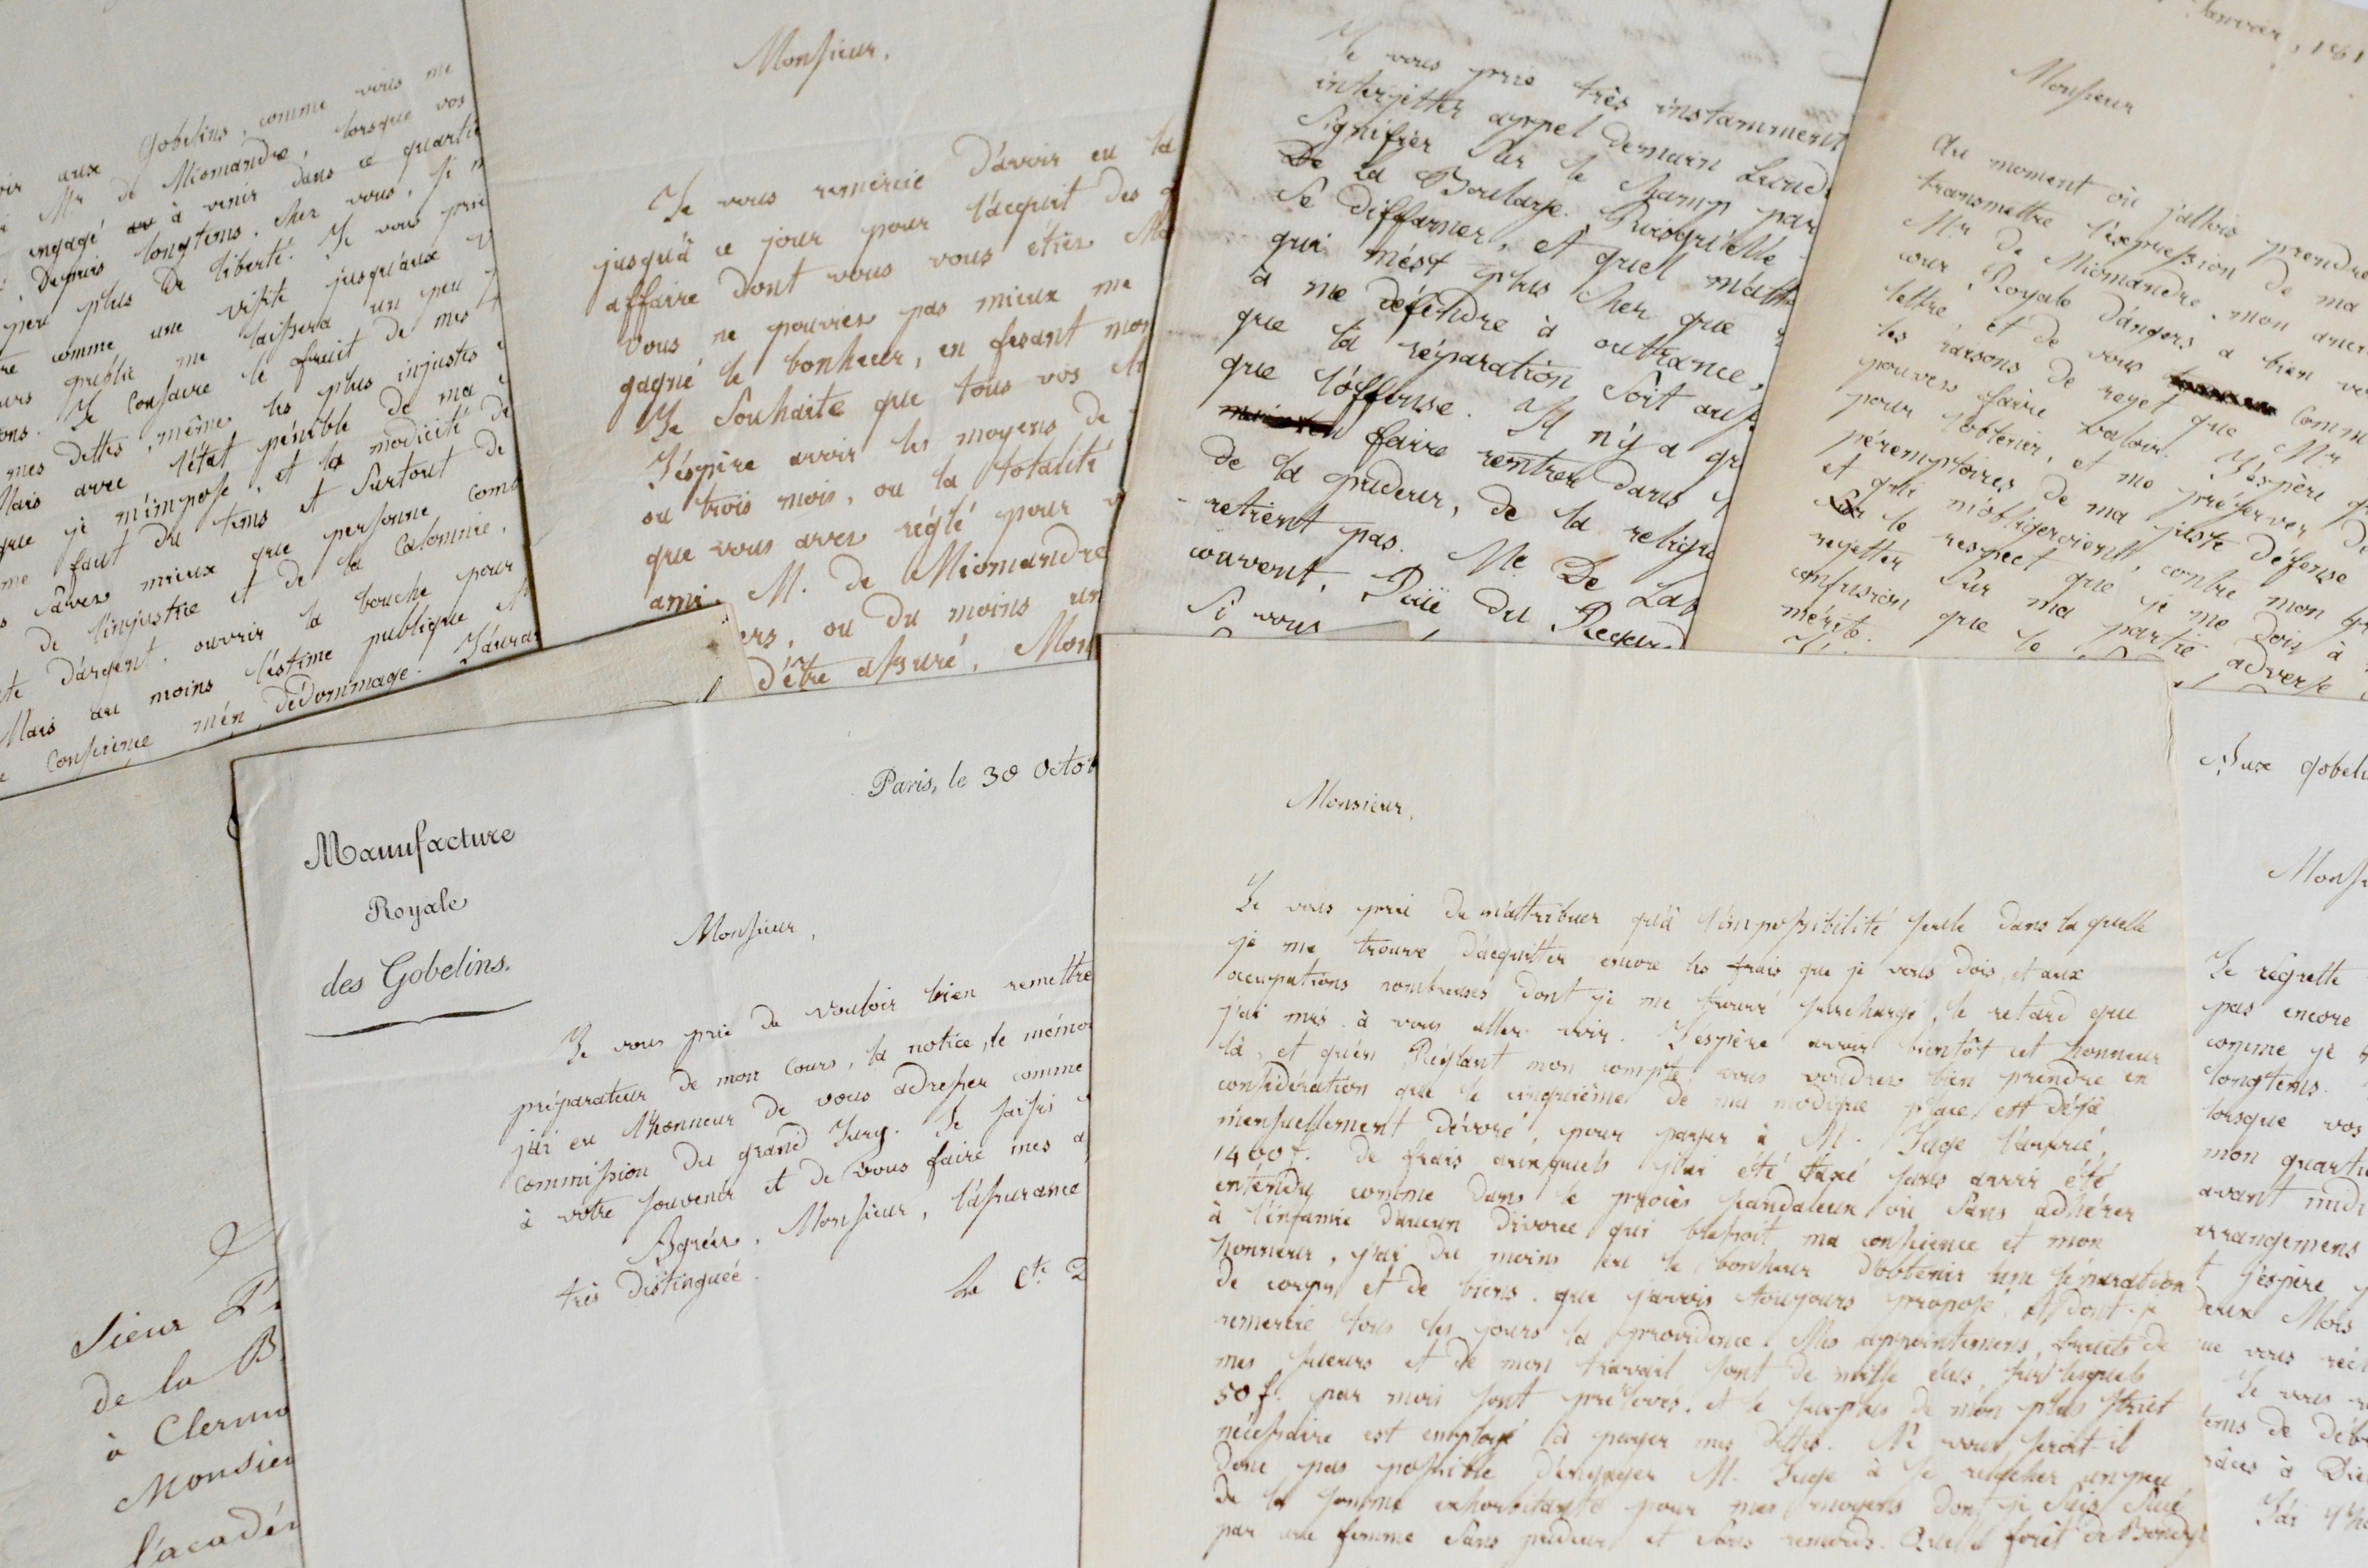 aux Gobelins, comme vous me
Mr. de Miomandre, lorsque vos
engagé à venir dans ce quartie
depuis longtems, chez vous, si
peu plus de liberté. Je vous prie
comme une visite jusqu'aux
publie me laissera un peu
Je consacre le fruit de mes
mes dettes, même les plus injustes
Mais avec l'état pénible de ma
que je m'impose, et la modicité de
me faut du tems et surtout de
savez mieux que personne comb
de l'injustice et de la calomnie,
d'argent, ouvrir la bouche pour
Mais au moins l'estime publique et
Conscience m'en dédommage. J'aurai
Monsieur,
Je vous remercie d'avoir eu la
jusqu'à ce jour pour l'acquit des
affaire dont vous vous étiez
Vous ne pouviez pas mieux me
gagné le bonheur, en fesant mon
Je souhaite que tous vos
J'espère avoir les moyens de
ou trois mois, ou la totalité
que vous avez réglé pour
ami, M. de Miomandre
ers, ou du moins un
d'être assuré, Mon
Je vous prie très instamment
interjetter appel demain Lundi
Signifier sur le champ par
De la Boularge. Puisqu'elle
se diffamer, et quel
qui m'est plus cher que
à me défendre à outrance,
que la réparation soit auss
que l'offense. Il n'y a
faire rentrer dans
de la pudeur, de la religi
retient pas. Me De La
couvent,
Si vous
Janvier, 181
Monsieur
Au moment où j'allois prendre
transmettre l'expression de ma
Mr. de Miomandre, mon
cour Royale d'angers a bien
lettre, et de vous Comm
les raisons de rejet que Mr.
pouvez faire valoir. J'espère
pour l'obtenir, et me préserver de
péremptoires de ma juste défense
et qui m'obligeroient, contre mon
le respect que je me dois à
rejetter sur ma partie adverse
confusion que le
mérite.
Manufacture
Royale
des Gobelins.
Paris, le 30 Octob
Monsieur,
Je vous prie de vouloir bien remettre
préparateur de mon Cours, la notice, le mémoi
j'ai eu l'honneur de vous adresser comme
Commission du grand Jury. Je saisis
à votre souvenir et de vous faire mes
Agréez, Monsieur, l'assurance
très distinguée.
Le Cte.
Sieur
de la B
à Clermo
Monsieu
l'acadé
Monsieur,
Je vous prie de n'attribuer qu'à l'impossibilité seule dans la quelle
je me trouve d'acquitter encore les frais que je vous dois, et aux
occupations nombreuses dont je me trouve surchargé, le retard que
j'ai mis à vous aller voir. J'espère avoir bientôt cet honneur
là, et qu'en Réglant mon compte, vous voudrez bien prendre en
considération que le cinquième de ma modique place est déjà
mensuellement dévoré, pour payer à M. Juge l'avoué,
1400 f. de frais auxquels j'ai été taxé sans avoir été
entendu comme dans le procès scandaleux où sans adhérer
à l'infamie d'aucun divorce qui blessoit ma conscience et mon
honneur, j'ai du moins eu le bonheur d'obtenir une séparation
de corps et de biens, que j'avois toujours proposé, et dont je
remercie tous les jours la providence. Mes appointemens, fruits de
mes sueurs et de mon travail sont de mille écus, sur lesquels
50 f. par mois sont prélevés, et le surplus de mon plus strict
nécessaire est employé à payer mes dettes. Ne vous seroit-il
donc pas possible d'engager M. Juge à se relâcher un peu
de la somme exhorbitante pour mes moyens dont je suis
par une femme sans pudeur et sans remords. forêt de Bondy
Aux gobeli
Monsi
Je regrette
pas encore
comme je
longtems.
lorsque vos
mon quartie
avant midi
arrangemens
j'espère
deux Mois
vous
Je vous
de
à Die
J'ai